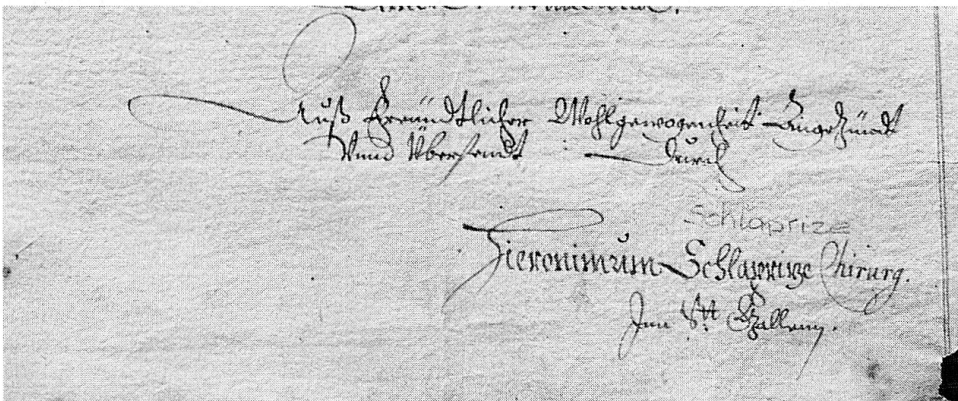 Auß Freündtlicher Wohlgewogenheit Angezündt
Vnnd Übersendt Durch
Schlaprize
Hieronimum Schlapprize Chirurg.
Jnn Stt. Gallenn.